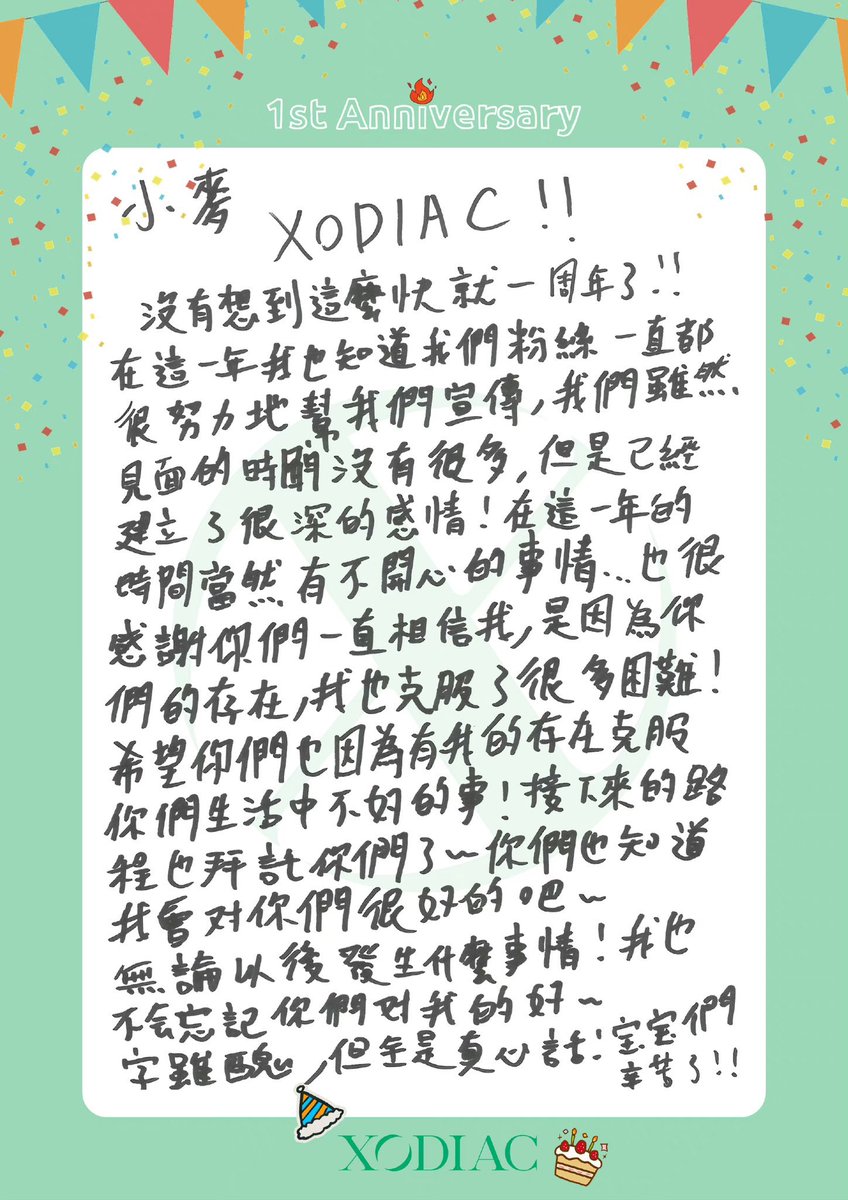 1st Anniversary
小麥
XODIAC!!
沒有想到這麼快就一周年了!!
在這一年我也知道我們粉絲一直都
很努力地幫我們宣傳,我們雖然
見面的時間沒有很多,但是已經
建立了很深的感情!在這一年的
時間當然有不開心的事情...也很
感謝你們一直相信我,是因為你
們的存在,我也克服了很多困難!
希望你們也因為有我的存在克服
你們生活中不好的事!接下來的路
程也拜託你們了~你們也知道
我會对你們很好的吧~
無論以後發生什麼事情!我也
不会忘記你們对我的好~
字雖醜,但全是真心話!宝宝們
辛苦了!!
XODIAC